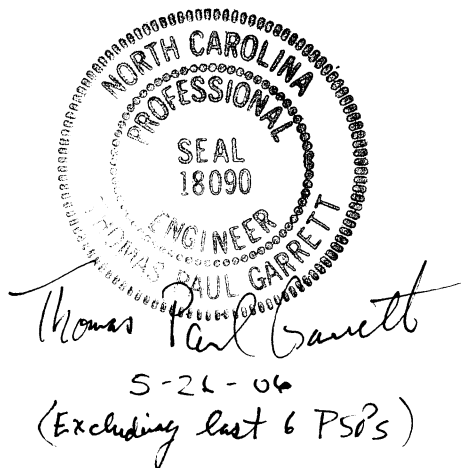 NORTH CAROLINA
PROFESSIONAL
SEAL
18090
ENGINEER
THOMAS PAUL GARRETT
Thomas Paul Garrett
5-26-06
(Excluding last 6 PSDPs)